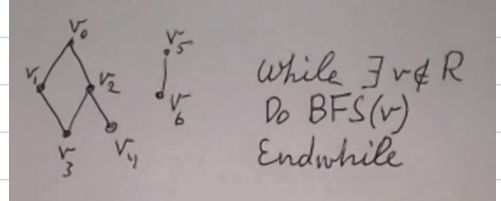 v₀
v₁ v₂
v₃ v₄
v₅
v₆
While ∃ v ∉ R
Do BFS(v)
Endwhile